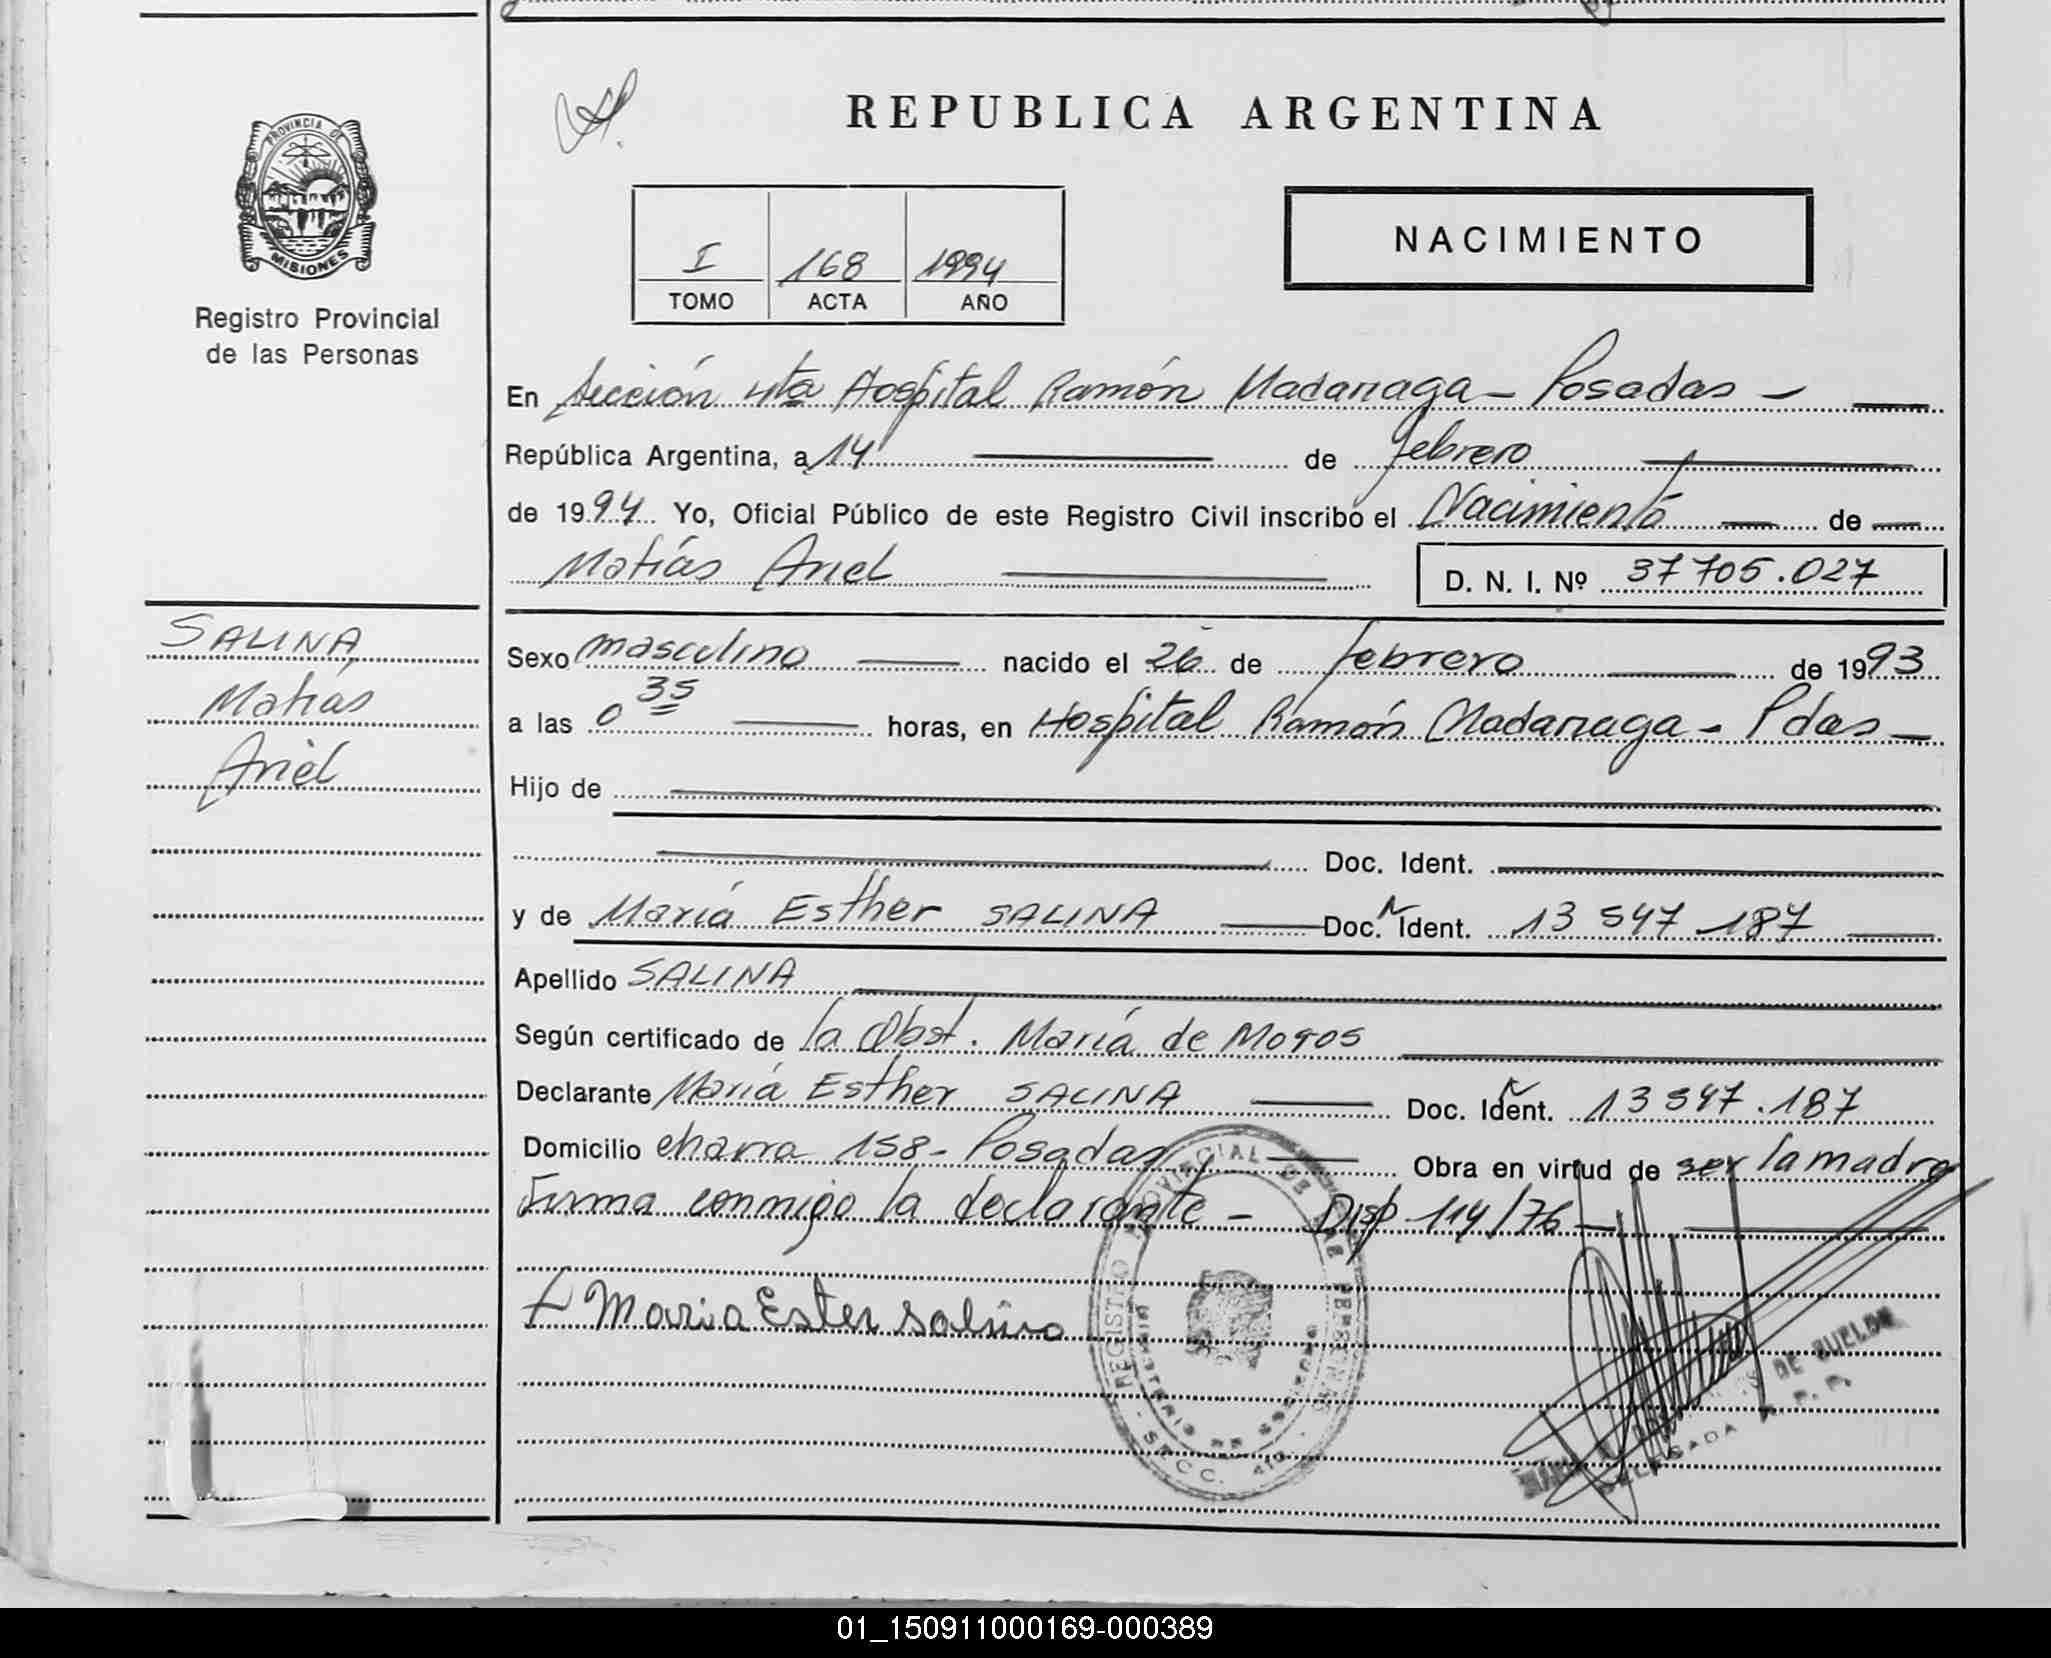 REPUBLICA ARGENTINA
PROVINCIA DE
MISIONES
Registro Provincial
de las Personas
I 168 1994
TOMO ACTA AÑO
NACIMIENTO
En Sección 4ta Hospital Ramón Madariaga - Posadas -
República Argentina, a 14 de febrero
de 1994. Yo, Oficial Público de este Registro Civil inscribo el Nacimiento de
Matías Ariel D. N. I. Nº 37705.027
SALINA
Matías
Ariel
Sexo masculino nacido el 26 de febrero de 1993
a las 0 35 horas, en Hospital Ramón Madariaga - Pdas -
Hijo de
Doc. Ident.
y de María Esther SALINA Doc. Ident. 13 547 187
Apellido SALINA
Según certificado de la Obst. María de Moros
Declarante María Esther SALINA Doc. Ident. 13 547.187
Domicilio charra 158 - Posadas Obra en virtud de ser la madre
Firma conmigo la declarante - Disp 114/76
Maria Ester Salina
REGISTRO PROVINCIAL DE LAS PERSONAS
SECC. 4ta
DE SUELDO
DELEGADA R. P. P.
01_150911000169-000389